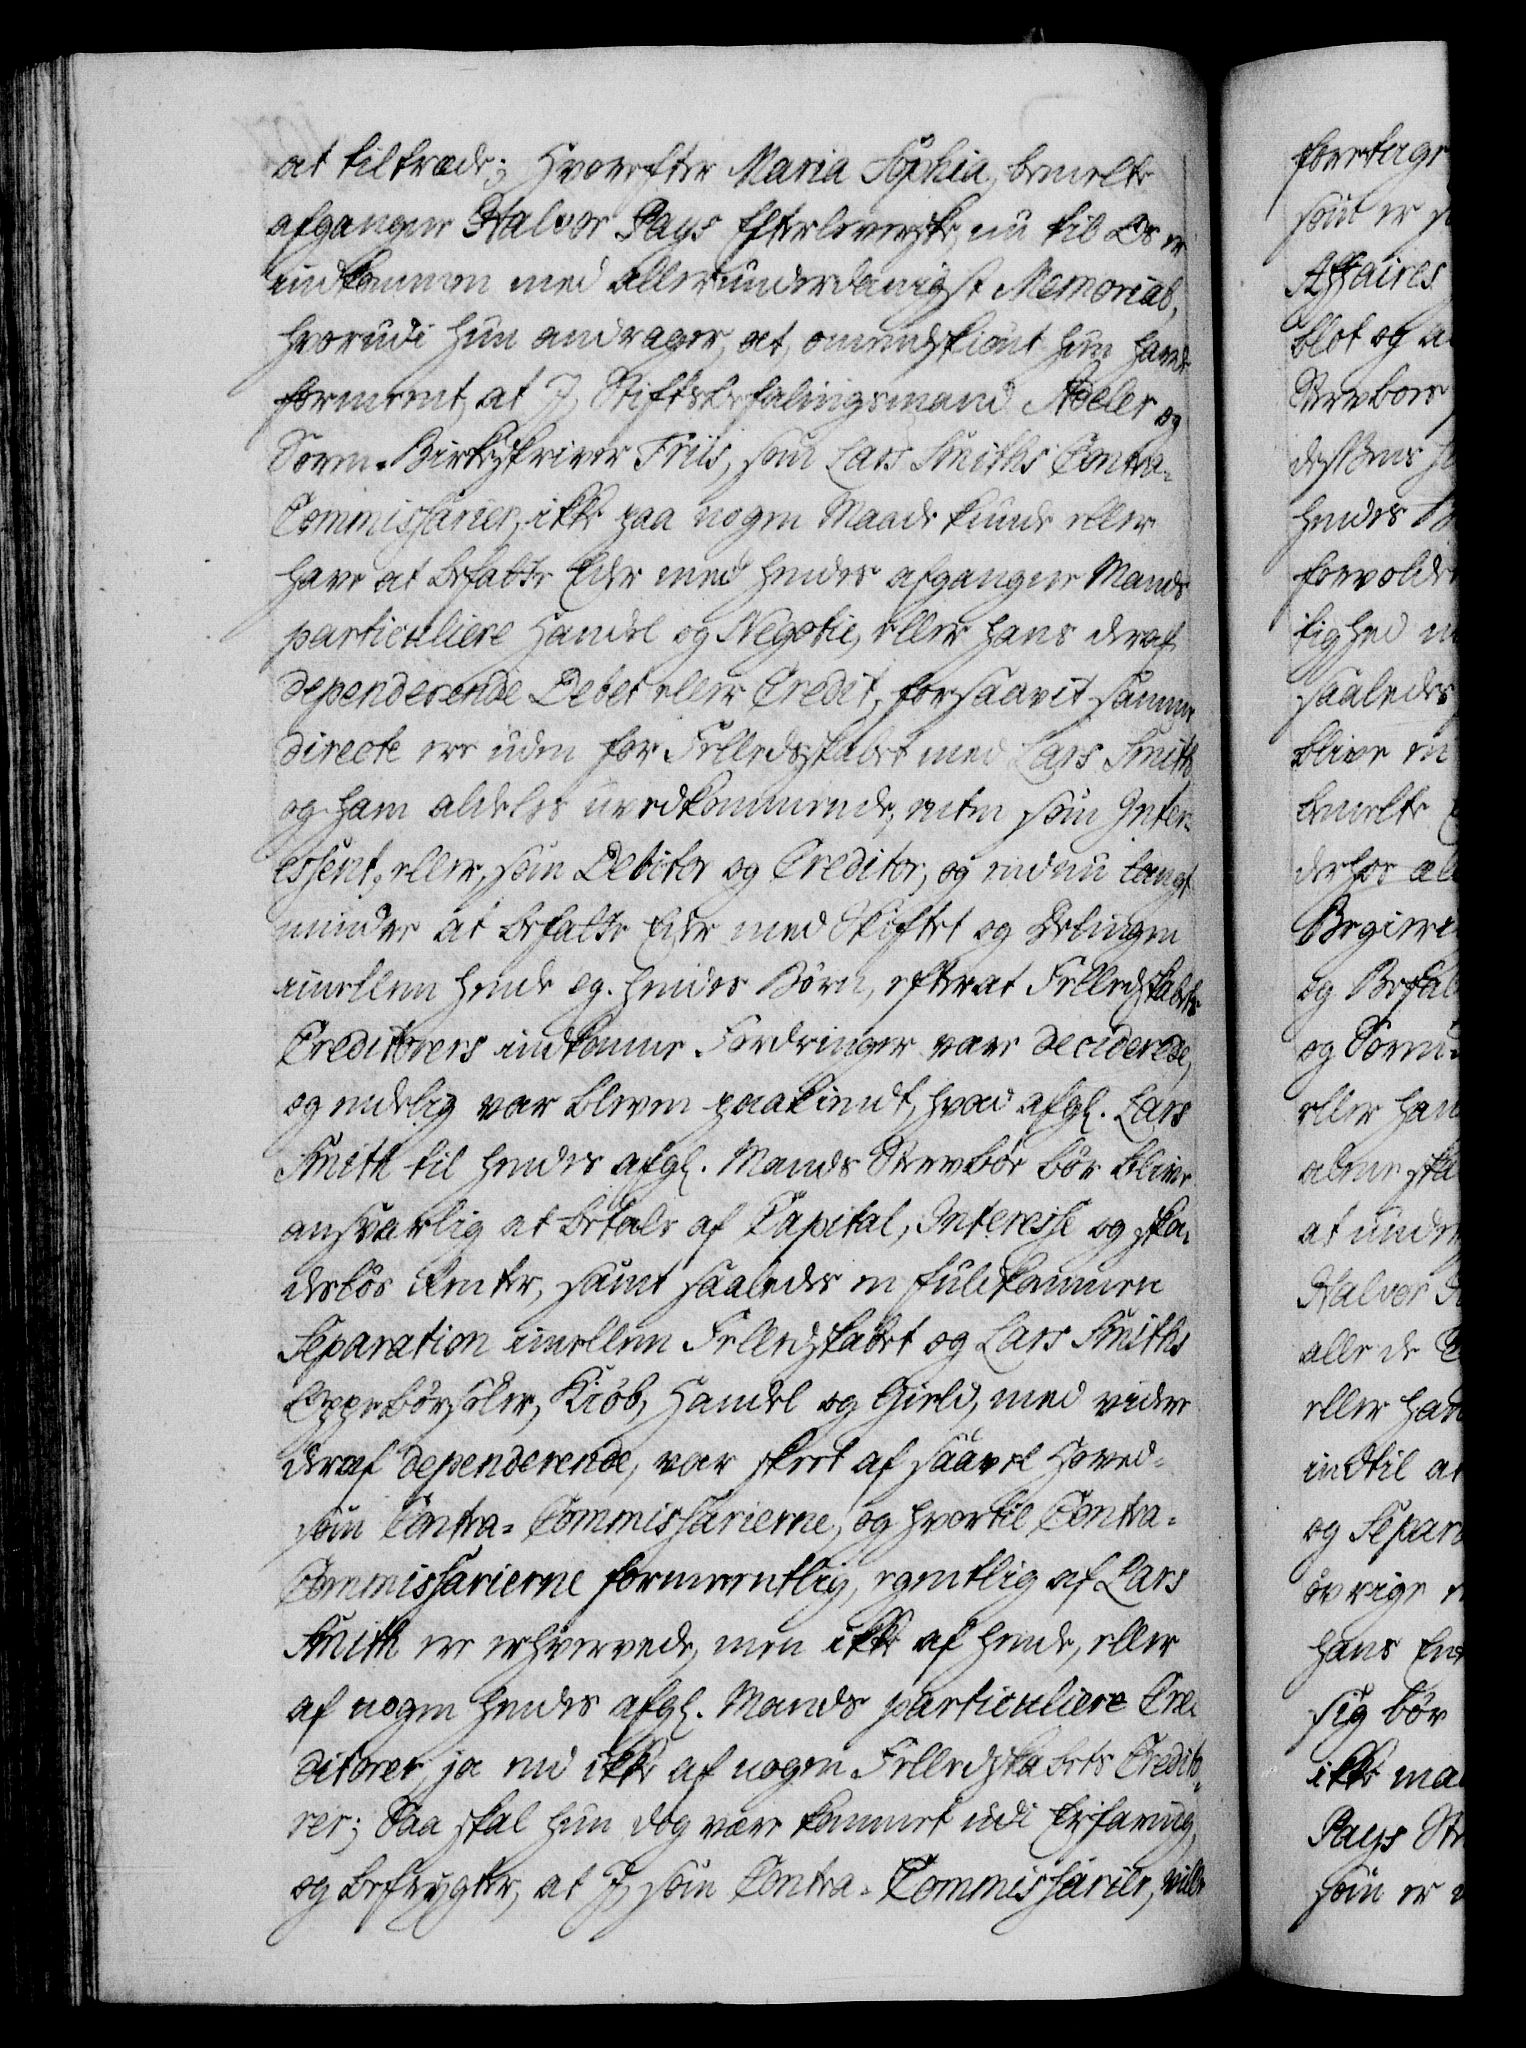 at tiltræde; Hvorefter Maria Sophia, bemelte
afgangne Halvor Pays Efterleverske, nu til Os er
indkommen med allerunderdanigst Memorial,
hvorudi hun andrager, at, omendskiønt hun havde
formeent, at I, Stiftsbefalingsmand Adeler og
Sorenskriver Friis, som Lars Smiths Contra-
Commissarier, ikke paa nogen Maade kunde eller
have at befatte Eder med hendes afgangne Mands
particuliere Handel og Negotie, eller hans deraf
dependerende Debet eller Credit, forsaavit samme
directe ere uden for Felledskabet med Lars Smith
og ham aldeles uvedkommende, enten som Inter-
essent, eller, som Debitor og Creditor, og endnu langt
mindre at befatte Eder med Skiftet og Delingen
imellem hende og hendes Børn, efterat Felledskabets
Creditorers indkomne Fordringer vare deciderede,
og endelig var bleven paakiendt, hvad afgl. Lars
Smith til hendes afgl. Mands Sterboe bør blive
ansvarlig at betale af Capital, Interesse og ska-
desløs Renter, samt saaledes en fuldkommen
Separation imellem Felledskabet og Lars Smiths
Oppebørseler, Kiøb, Handel og Gield, med videre
deraf dependerende, var skeet af saavel Hoved-
som Contra-Commissarierne, og hvortil Contra-
Commissarierne formeentlig, egentlig af Lars
Smith ere erhvervede, men ikke af hende, eller
af nogen hendes afgl. Mands particuliere Cre-
ditorer, ja end ikke af nogen Felledskabets Credito-
rer; Saa skal hun dog være kommet udi Erfaring,
og befrygter, at I, som Contra-Commissarier, ville
foretage
som er
Affaires
blot og
Sterboes
hendes
saaledes
blive en
bemelte
og
eller
at under
Halvor
alle de
eller
indtil at
og Separa
øvrige
hans
sig bør
ikke
Pays
som er